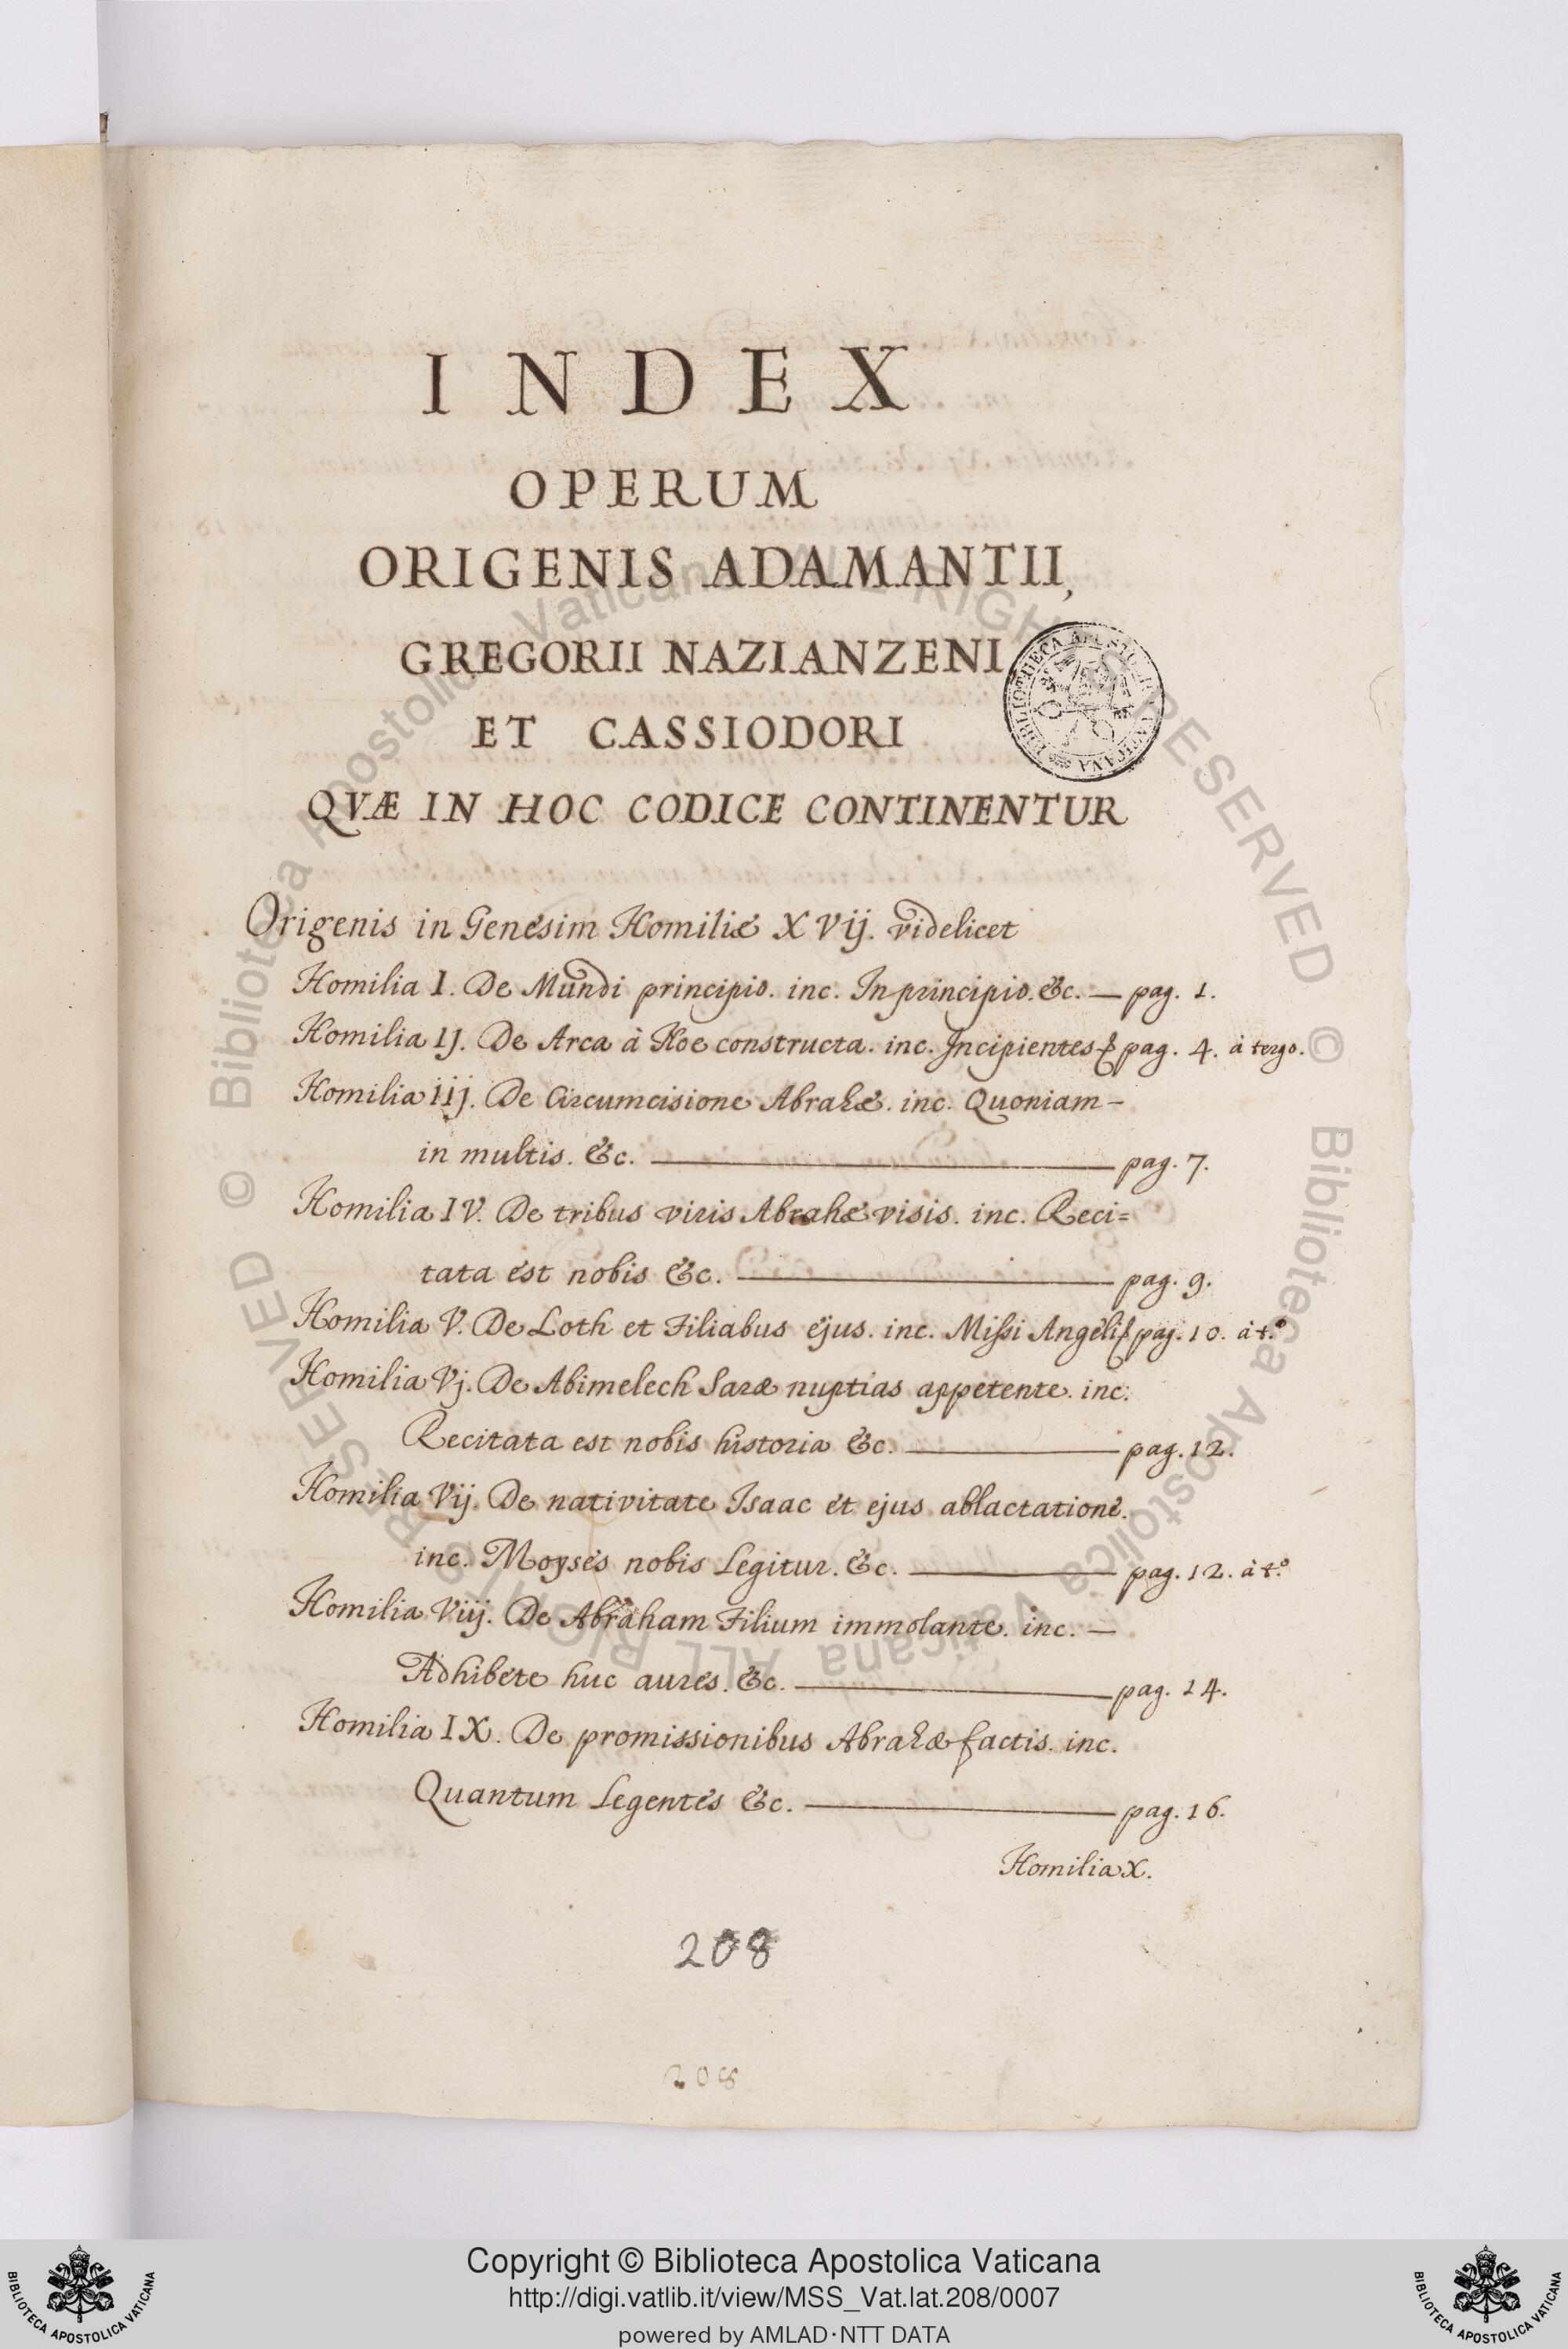 INDEX
OPERUM
ORIGENIS ADAMANTII,
GREGORII NAZIANZENI,
ET CASSIODORI
QVÆ IN HOC CODICE CONTINENTUR
Origenis in Genesim Homiliæ XVij. videlicet
Homilia I. De Mundi principio. inc. In principio. &c. — pag. 1.
Homilia IJ. De Arca à Noe constructa. inc. Incipientes & pag. 4. à tergo.
Homilia iij. De Circumcisione Abrahæ. inc. Quoniam –
in multis. &c. — pag. 7.
Homilia IV. De tribus viris Abrahæ visis. inc. Reci=
tata est nobis &c. — pag. 9.
Homilia V. De Loth et Filiabus ejus. inc. Missi Angeli & pag. 10. à t.º
Homilia Vj. De Abimelech Saræ nuptias appetente. inc.
Recitata est nobis historia &c. — pag. 12.
Homilia Vij. De nativitate Isaac et ejus ablactatione.
inc. Moyses nobis Legitur. &c. — pag. 12. à t.º
Homilia Viij. De Abraham Filium immolante. inc. —
Adhibete huc aures. &c. — pag. 14.
Homilia IX. De promissionibus Abrahæ factis. inc.
Quantum Legentes &c. — pag. 16.
Homilia X.
208
208
Copyright © Biblioteca Apostolica Vaticana
http://digi.vatlib.it/view/MSS_Vat.lat.208/0007
powered by AMLAD·NTT DATA
BIBLIOTECA APOSTOLICA VATICANA
BIBLIOTECA APOSTOLICA VATICANA
© Biblioteca Apostolica Vaticana ALL RIGHTS RESERVED
© Biblioteca Apostolica Vaticana ALL RIGHTS RESERVED